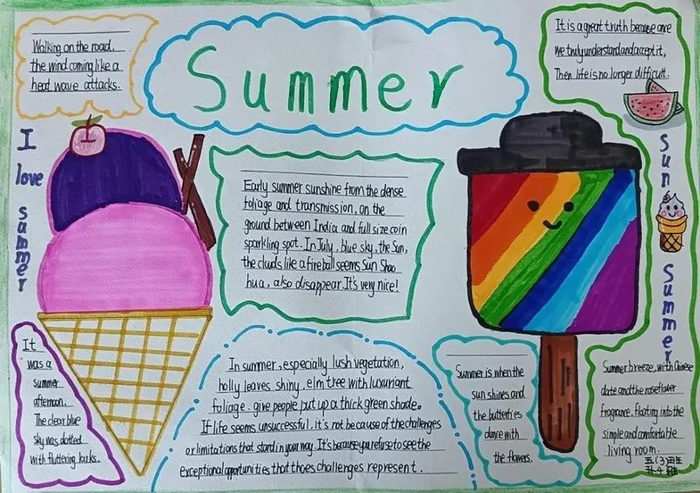 Walking on the road,
the wind coming like a
heat wave attacks.
Summer
It is a great truth because once
we truly understand and accept it,
Then life is no longer difficult.
I
love
summer
Early summer sunshine from the dense
foliage and transmission, on the
ground between India and full size coin
sparkling spot. In July, blue sky, the Sun,
the clouds like a fireball seems Sun Shao
hua, also disappear. It's very nice!
Sun
Summer
It
was a
summer
afternoon.
The clear blue
sky was dotted
with fluttering larks.
In summer, especially lush vegetation,
holly leaves shiny, elm tree with luxuriant
foliage, give people put up a thick green shade.
If life seems unsuccessful, it's not because of the challenges
or limitations that stand in your way. It's because you refuse to see the
exceptional opportunities that thoes challenges represent.
Summer is when the
sun shines and
the butterflies
dance with
the flowers.
Summer breeze, with Chinese
date and the rose flower
fragrance, floating into the
simple and comfortable
living room.
五(3)班